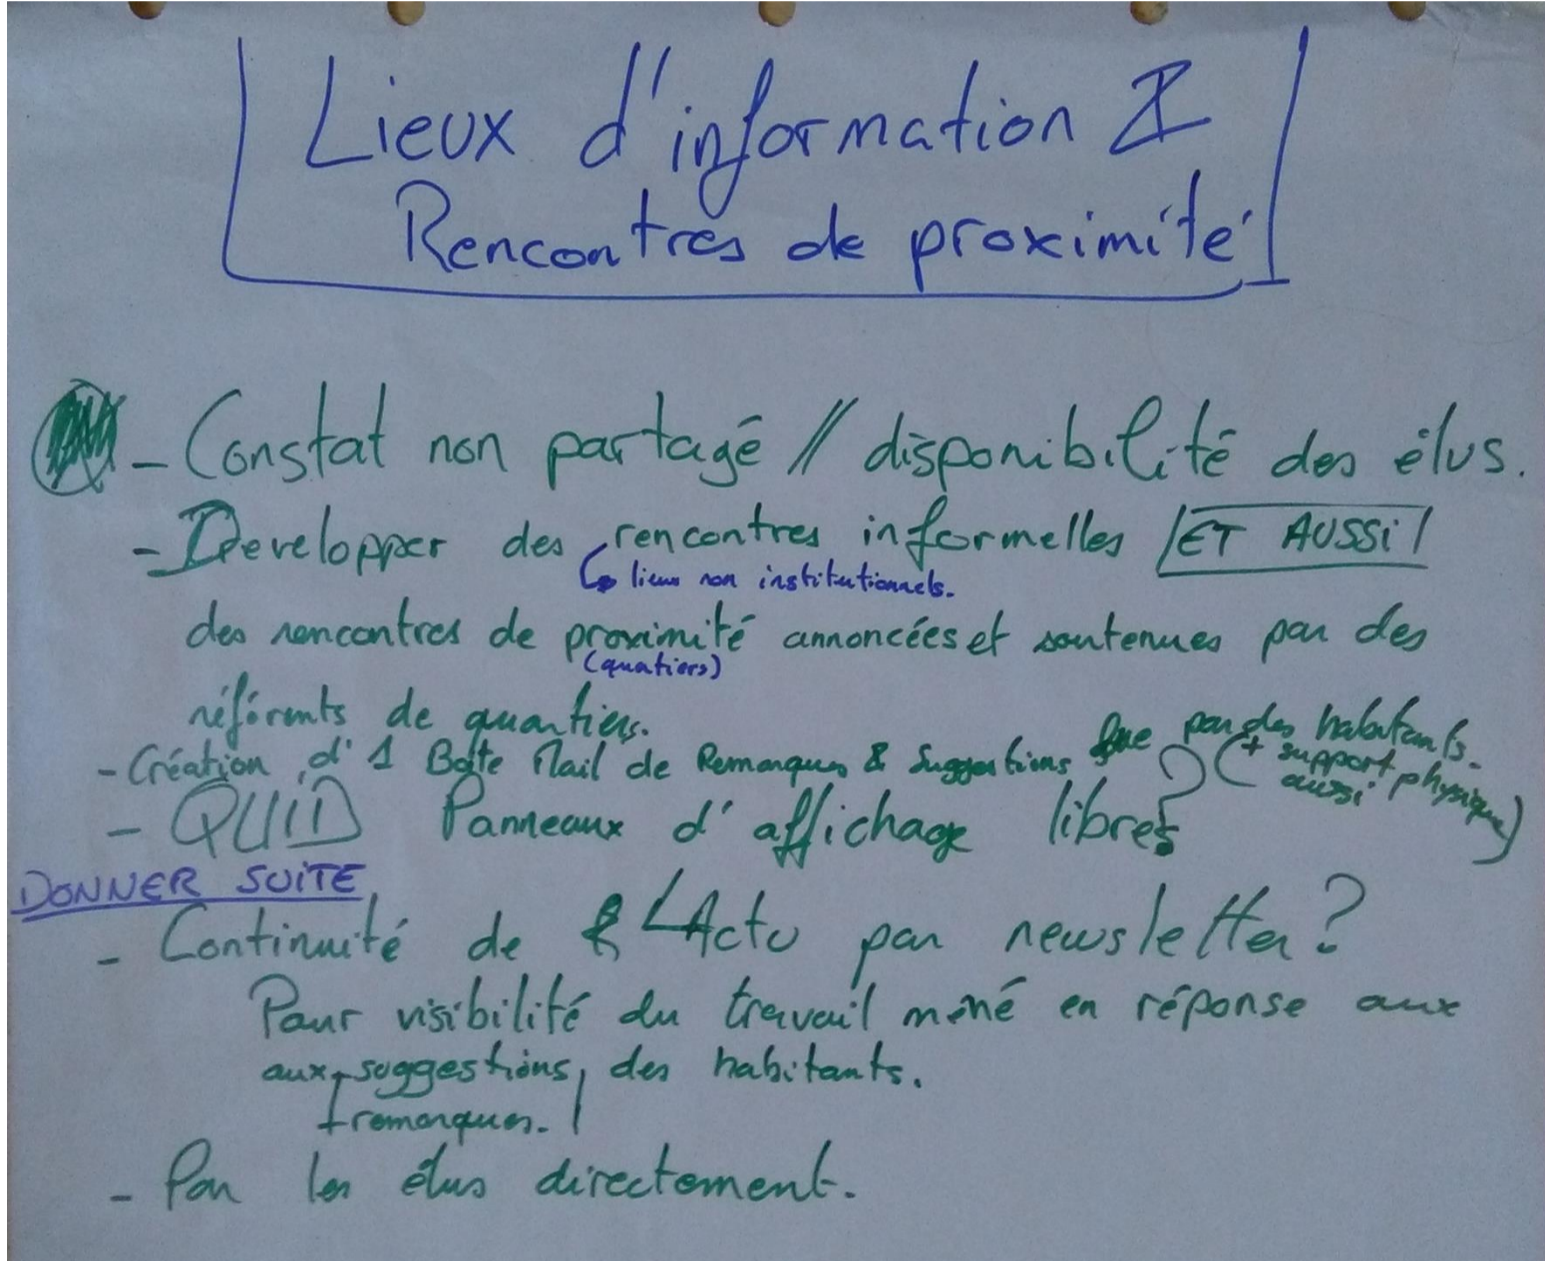 Lieux d'information &
Rencontres de proximité
- Constat non partagé // disponibilité des élus.
- Developper des rencontres informelles ET AUSSI
↳ lieux non institutionnels.
des rencontres de proximité annoncées et soutenues par des
(quatiers)
référents de quartiers.
- Création d'1 Boîte Mail de Remarques & Suggestions par des habitants.
(+ support physique aussi)
- QUID Panneaux d'affichage libres?
DONNER SUITE
- Continuité de L'Actu par newsletter?
Pour visibilité du travail mené en réponse aux
aux suggestions, des habitants.
+ remarques.
- Par les élus directement.